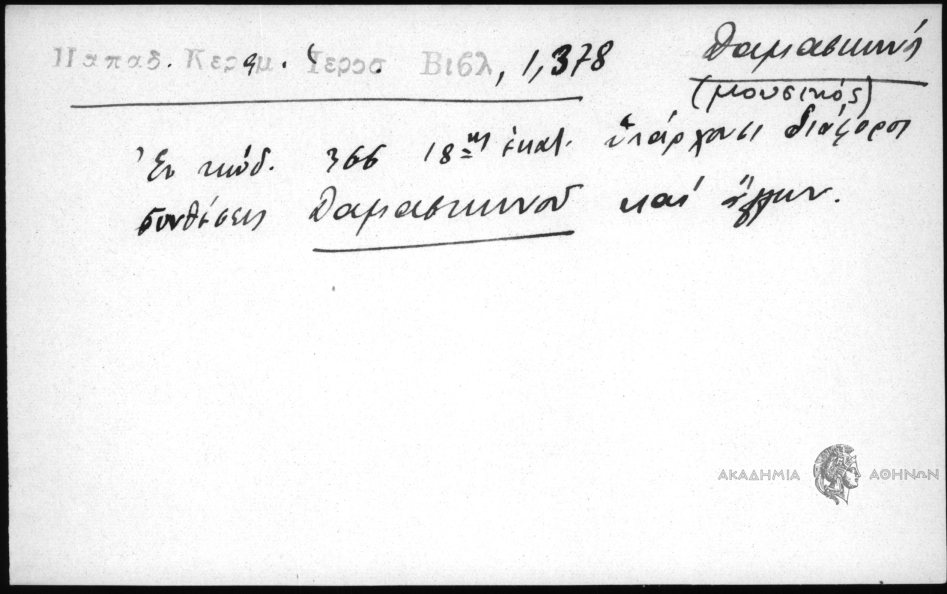 Παπαδ. Κεραμ. Ἱεροσ Βιβλ, 1,378
Δαμασκηνός
(μουσικός)
Ἐν κώδ. 366 18ης ἑκατ. ὑπάρχουσι διάφοροι
συνθέσεις Δαμασκηνοῦ καὶ ἄλλων.
ΑΚΑΔΗΜΙΑ ΑΘΗΝΩΝ